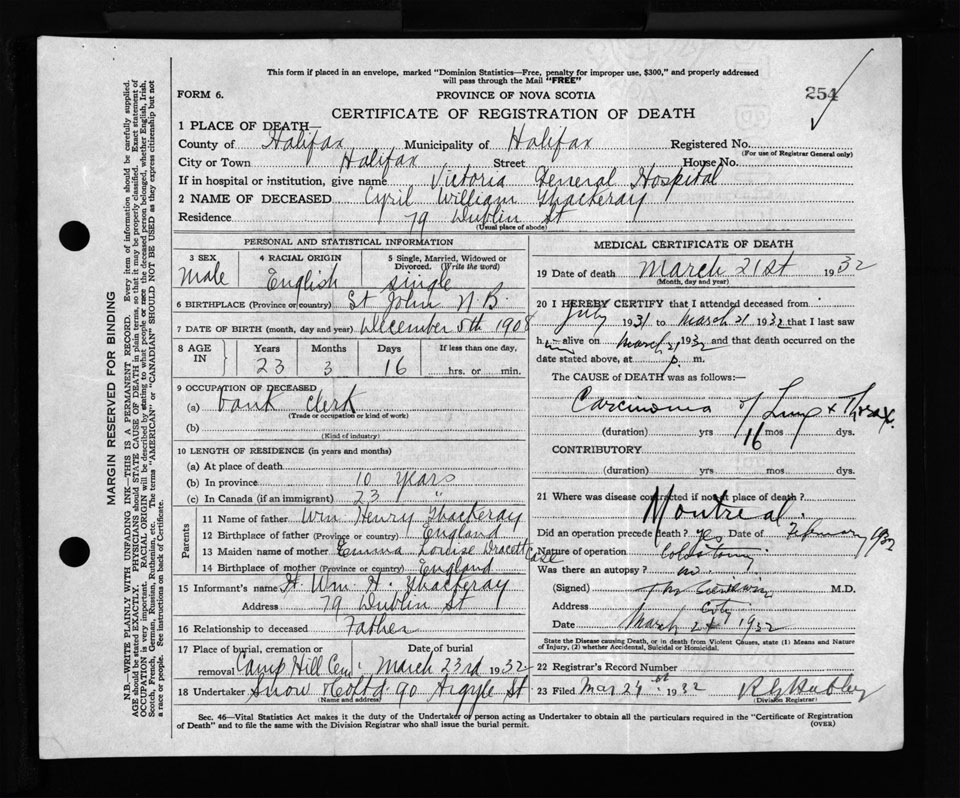 This form if placed in an envelope, marked "Dominion Statistics—Free, penalty for improper use, $300," and properly addressed
will pass through the Mail "FREE"
FORM 6.
PROVINCE OF NOVA SCOTIA
254
CERTIFICATE OF REGISTRATION OF DEATH
1 PLACE OF DEATH—
County of Halifax Municipality of Halifax Registered No.
(For use of Registrar General only)
City or Town Halifax Street House No.
If in hospital or institution, give name Victoria General Hospital
2 NAME OF DECEASED Cyril William Thackeray
Residence 79 Dublin St
(Usual place of abode)
PERSONAL AND STATISTICAL INFORMATION
3 SEX 4 RACIAL ORIGIN 5 Single, Married, Widowed or
Divorced. (Write the word)
Male English single
6 BIRTHPLACE (Province or country) St John N B.
7 DATE OF BIRTH (month, day and year) December 5th 1908
8 AGE IN Years Months Days If less than one day,
23 3 16 hrs. or min.
9 OCCUPATION OF DECEASED
(a) bank clerk
(Trade or occupation or kind of work)
(b)
(Kind of industry)
10 LENGTH OF RESIDENCE (in years and months)
(a) At place of death
(b) In province 10 years
(c) In Canada (if an immigrant) 23 "
Parents
11 Name of father Wm Henry Thackeray
12 Birthplace of father (Province or country) England
13 Maiden name of mother Emma Louise
14 Birthplace of mother (Province or country) England
15 Informant's name Wm H. Thackeray
Address 79 Dublin St
16 Relationship to deceased Father
17 Place of burial, cremation or Date of burial
removal Camp Hill Cem. March 23rd 1932
18 Undertaker Snow & Co Ltd. 90 Argyle St
(Name and address)
MEDICAL CERTIFICATE OF DEATH
19 Date of death March 21st 1932
(Month, day and year)
20 I HEREBY CERTIFY that I attended deceased from
July 1931 to March 21 1932 and that I last saw
him alive on March 21 1932 and that death occurred on the
date stated above, at p. m.
The CAUSE of DEATH was as follows:
Carcinoma of Lung & Thorax.
(duration) yrs 16 mos dys.
CONTRIBUTORY
(duration) yrs mos dys.
21 Where was disease contracted if not at place of death?
Montreal.
Did an operation precede death? Yes Date of February 1932
Nature of operation
Was there an autopsy? no.
(Signed) M.D.
Address City
Date March 24 1932
State the Disease causing Death, or in death from Violent Causes, state (1) Means and Nature
of Injury, (2) whether Accidental, Suicidal or Homicidal.
22 Registrar's Record Number
23 Filed Mar 24 1932
(Division Registrar)
Sec. 46—Vital Statistics Act makes it the duty of the Undertaker or person acting as Undertaker to obtain all the particulars required in the "Certificate of Registration
of Death" and to file the same with the Division Registrar who shall issue the burial permit. (OVER)
MARGIN RESERVED FOR BINDING
N.B.—WRITE PLAINLY WITH UNFADING INK—THIS IS A PERMANENT RECORD. Every item of information should be carefully supplied.
AGE should be stated EXACTLY. PHYSICIANS should STATE CAUSE OF DEATH in plain terms, so that it may be properly classified. Exact statement of
OCCUPATION is very important. RACIAL ORIGIN will be described by stating to what people or race the deceased person belonged, whether English, Irish,
Scotch, French, German, Russian, Ruthenian, etc. The terms "AMERICAN" or "CANADIAN" SHOULD NOT BE USED as they express citizenship but not
a race or people. See instructions on back of Certificate.